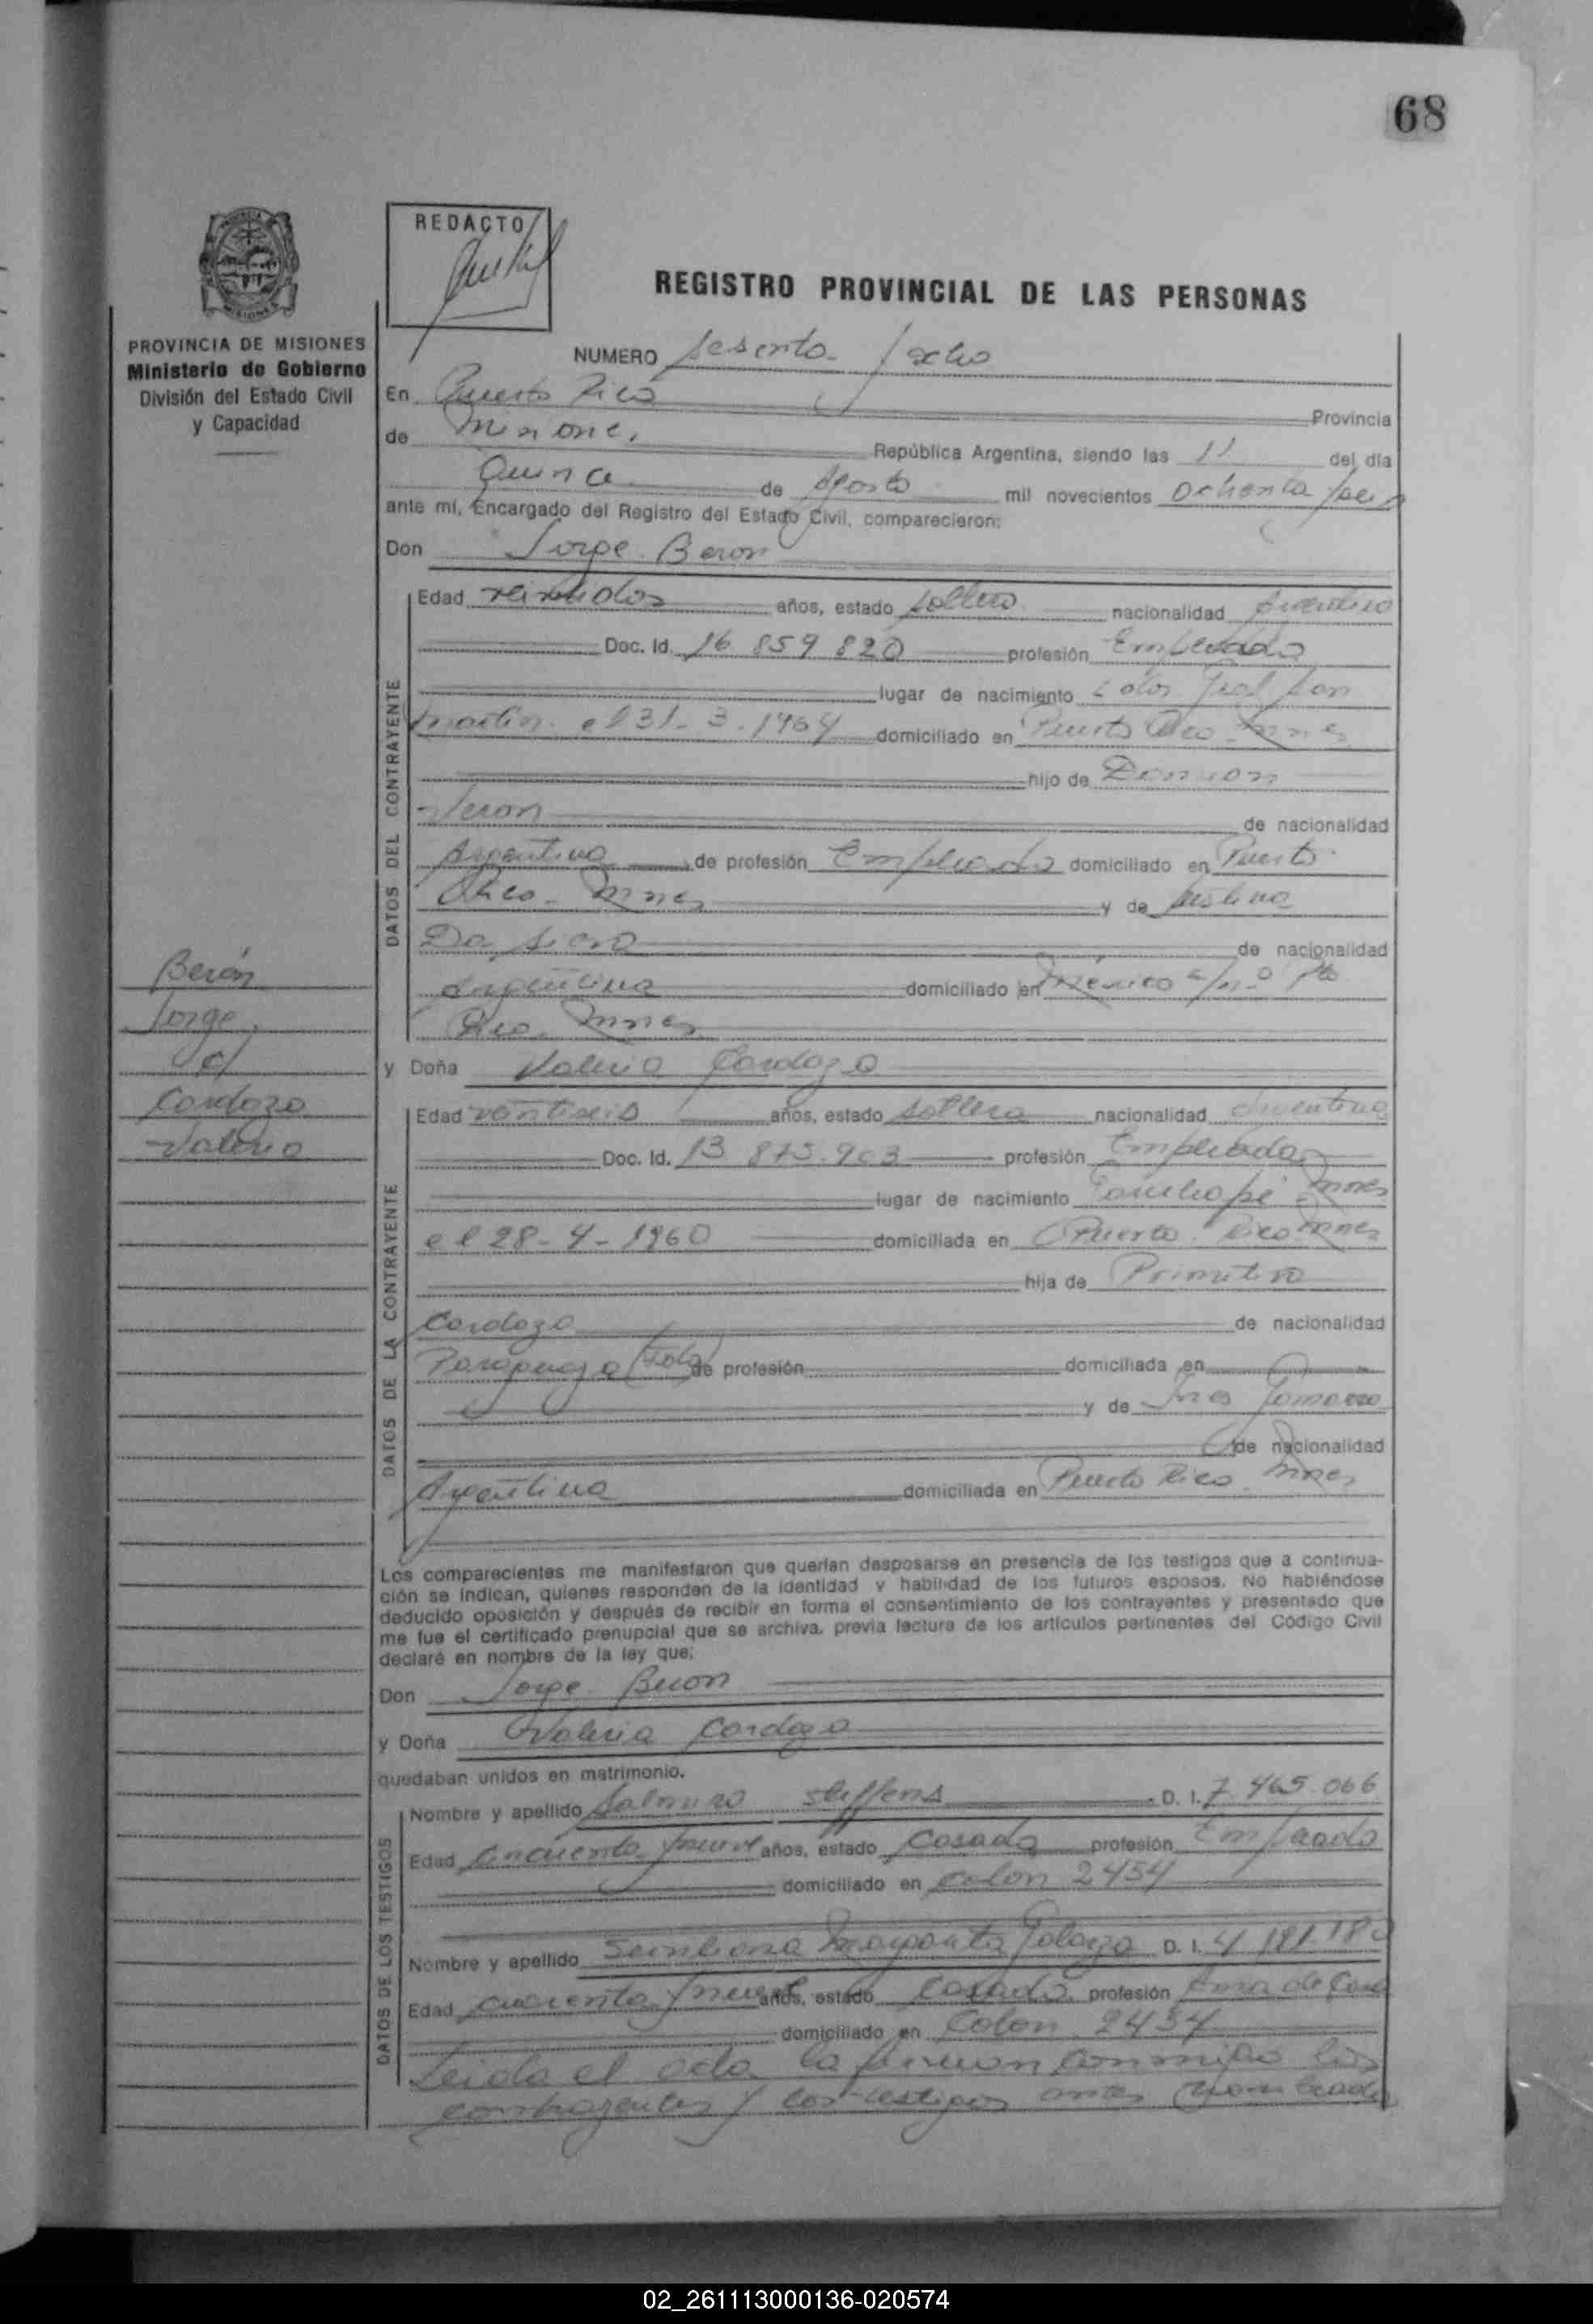 68
REDACTO
REGISTRO PROVINCIAL DE LAS PERSONAS
PROVINCIA DE MISIONES
Ministerio de Gobierno
División del Estado Civil
y Capacidad
NUMERO sesenta y ocho
En Puerto Rico Provincia
de Misiones República Argentina, siendo las 11 del día
Quince de Agosto mil novecientos ochenta y seis
ante mí, Encargado del Registro del Estado Civil, comparecieron:
Don Jorge Beron
DATOS DEL CONTRAYENTE
Edad veintidos años, estado soltero nacionalidad Argentino
Doc. Id. 16 859 820 profesión Empleado
lugar de nacimiento Ldor Gral San
Martin el 31-3-1964 domiciliado en Puerto Rico Mnes
hijo de
de nacionalidad
Argentina de profesión Empleado domiciliado en Puerto
Rico - Mnes y de
Da de nacionalidad
Argentina domiciliado en Mexico s/nº Pto
Rico Mnes
Berón
Jorge
c/
Cardozo
Valeria
y Doña Valeria Cardozo
DATOS DE LA CONTRAYENTE
Edad veintiseis años, estado soltera nacionalidad Argentina
Doc. Id. 13 875.903 profesión Empleada
lugar de nacimiento Mnes
el 28-4-1960 domiciliada en Puerto Rico Mnes
hija de Primitivo
Cardozo de nacionalidad
Paraguayo de profesión domiciliada en
y de Ines
de nacionalidad
Argentina domiciliada en Puerto Rico Mnes
Los comparecientes me manifestaron que querían desposarse en presencia de los testigos que a continua-
ción se indican, quienes responden de la identidad y habilidad de los futuros esposos. No habiéndose
deducido oposición y después de recibir en forma el consentimiento de los contrayentes y presentado que
me fue el certificado prenupcial que se archiva, previa lectura de los artículos pertinentes del Código Civil
declaré en nombre de la ley que;
Don Jorge Beron
y Doña Valeria Cardozo
quedaban unidos en matrimonio.
DATOS DE LOS TESTIGOS
Nombre y apellido Steffens D. I. 7.465.066
Edad cincuenta y nueve años, estado Casado profesión Empleado
domiciliado en Colon 2454
Nombre y apellido Margarita D. I. 4 191.180
Edad cuarenta y nueve años, estado Casada profesión Ama de Casa
domiciliado en Colon 2454
Leida el acta la firman conmigo los
contrayentes y los testigos antes nombrados
02_261113000136-020574